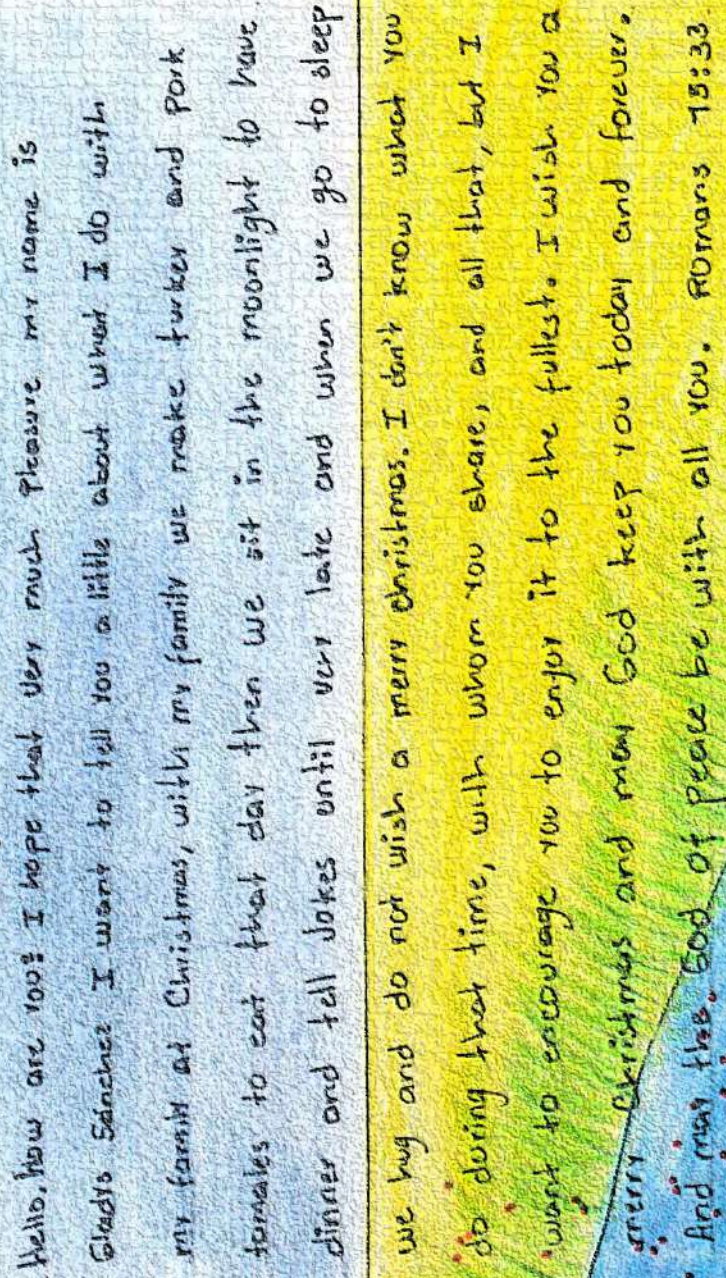 Hello, how are you? I hope that very much pleasure my name is
Gladys Sánchez I want to tell you a little about what I do with
my family at Christmas, with my family we make turkey and pork
tamales to eat that day then we sit in the moonlight to have
dinner and tell Jokes until very late and when we go to sleep
we hug and do not wish a merry christmas. I don't know what you
do during that time, with whom you share, and all that, but I
want to encourage you to enjoy it to the fullest. I wish you a
merry christmas and may God keep you today and forever.
And may the God of peace be with all you. Romans 15:33.